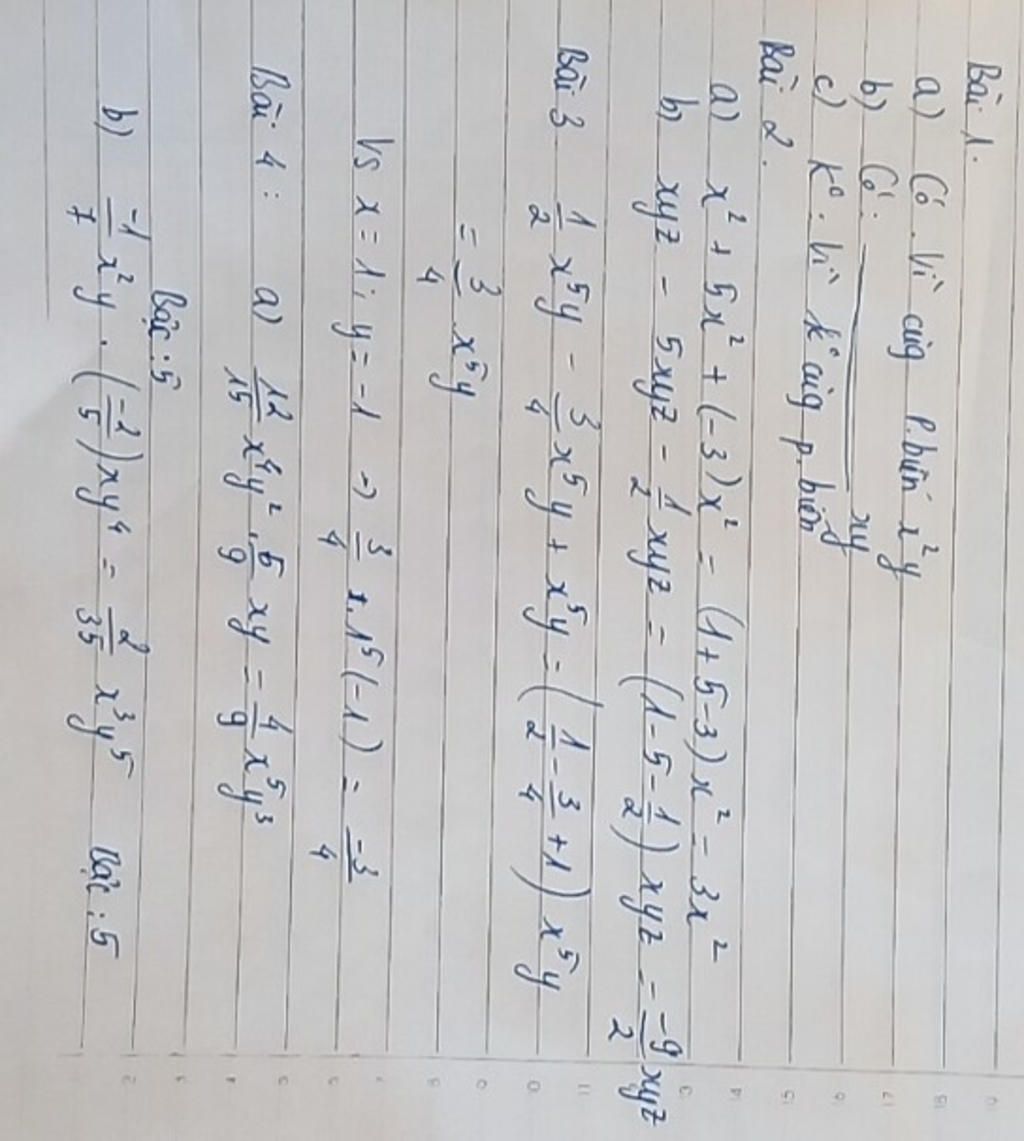 Bài 1.
a) Có. Vì cùng p.biến x²y
b) Có: ——— xy
c) K°. Vì k° cùng p.biến
Bài 2.
a) x² + 5x² + (-3)x² = (1+5-3)x² = 3x²
b) xyz - 5xyz - 1/2 xyz = (1-5-1/2) xyz = -9/2 xyz
Bài 3 1/2 x⁵y - 3/4 x⁵y + x⁵y = (1/2 - 3/4 + 1) x⁵y
= 3/4 x⁵y
Vs x = 1; y = -1 → 3/4 . 1⁵(-1) = -3/4
Bài 4: a) 12/15 x⁴y² . 5/9 xy = 4/9 x⁵y³
Bậc: 5
b) -1/7 x²y . (-2/5) xy⁴ = 2/35 x³y⁵ Bậc: 5